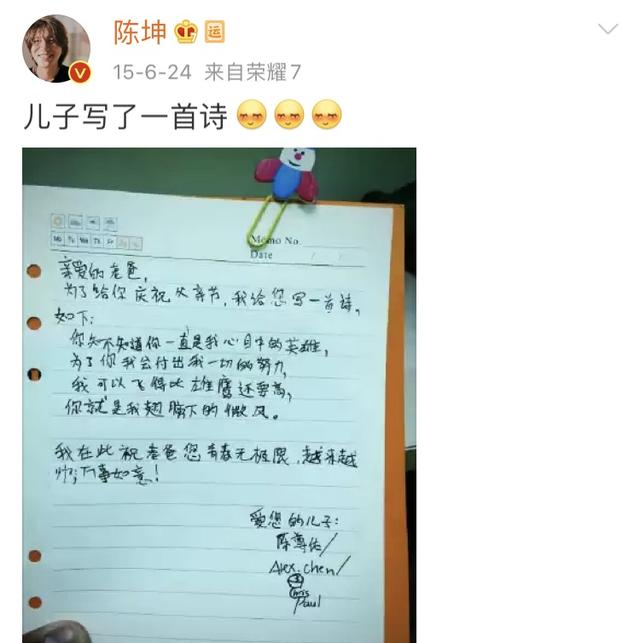 陈坤
15-6-24 来自荣耀7
儿子写了一首诗
Memo No.
Mo Tu We Th Fr Sa Su
Date / /
亲爱的老爸,
为了给你庆祝父亲节,我给您写一首诗,
如下:
你知不知道你一直是我心目中的英雄,
为了你我会付出我一切的努力,
我可以飞得比雄鹰还要高,
你就是我翅膀下的微风。
我在此祝老爸您青春无极限,越来越
帅,万事如意!
爱您的儿子:
陈尊佑/
Alex.chen/
Chris
Paul